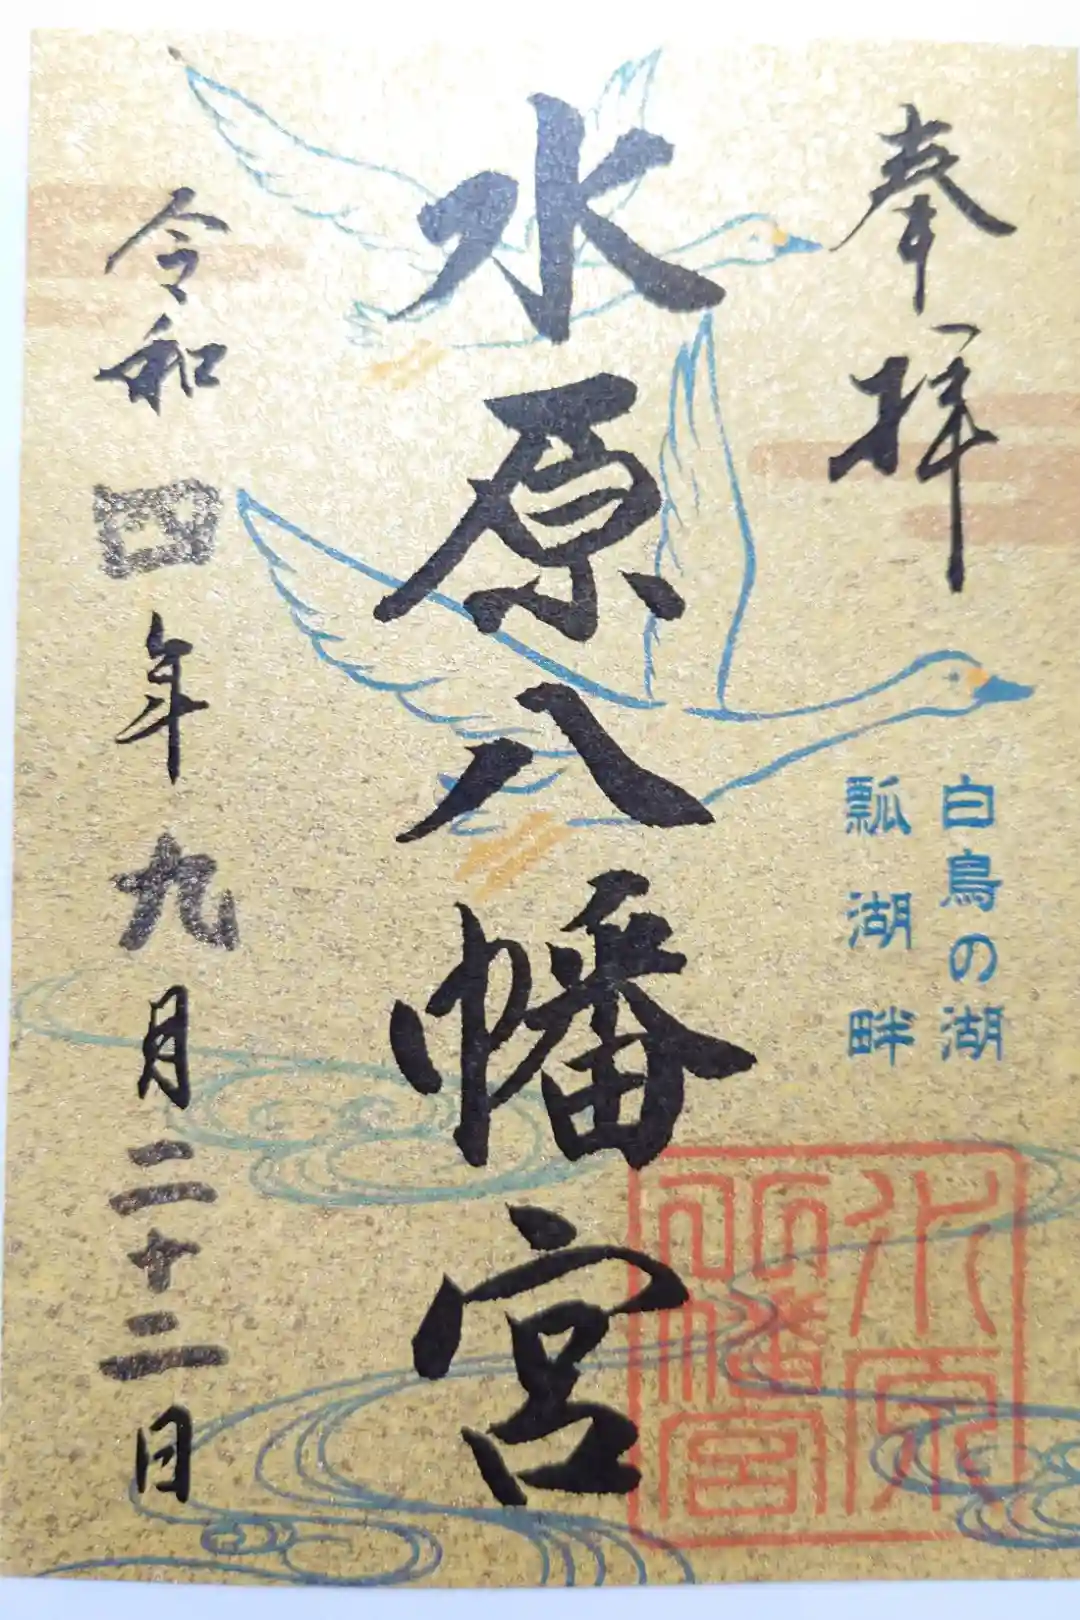 奉拝
白鳥の湖
瓢湖畔
水原八幡宮
水原
八幡宮
令和四年九月二十二日